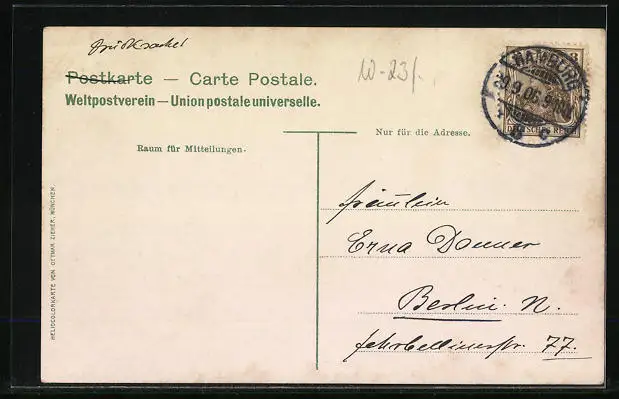 Drucksache
Postkarte — Carte Postale.
Weltpostverein — Union postale universelle.
W-23/-
HAMBURG
3
DEUTSCHES REICH
Nur für die Adresse.
Raum für Mitteilungen.
Fräulein
Erna Donner
Berlin. N.
Fehrbellinerstr. 77.
HELIOCOLORKARTE VON OTTMAR ZIEHER, MÜNCHEN.